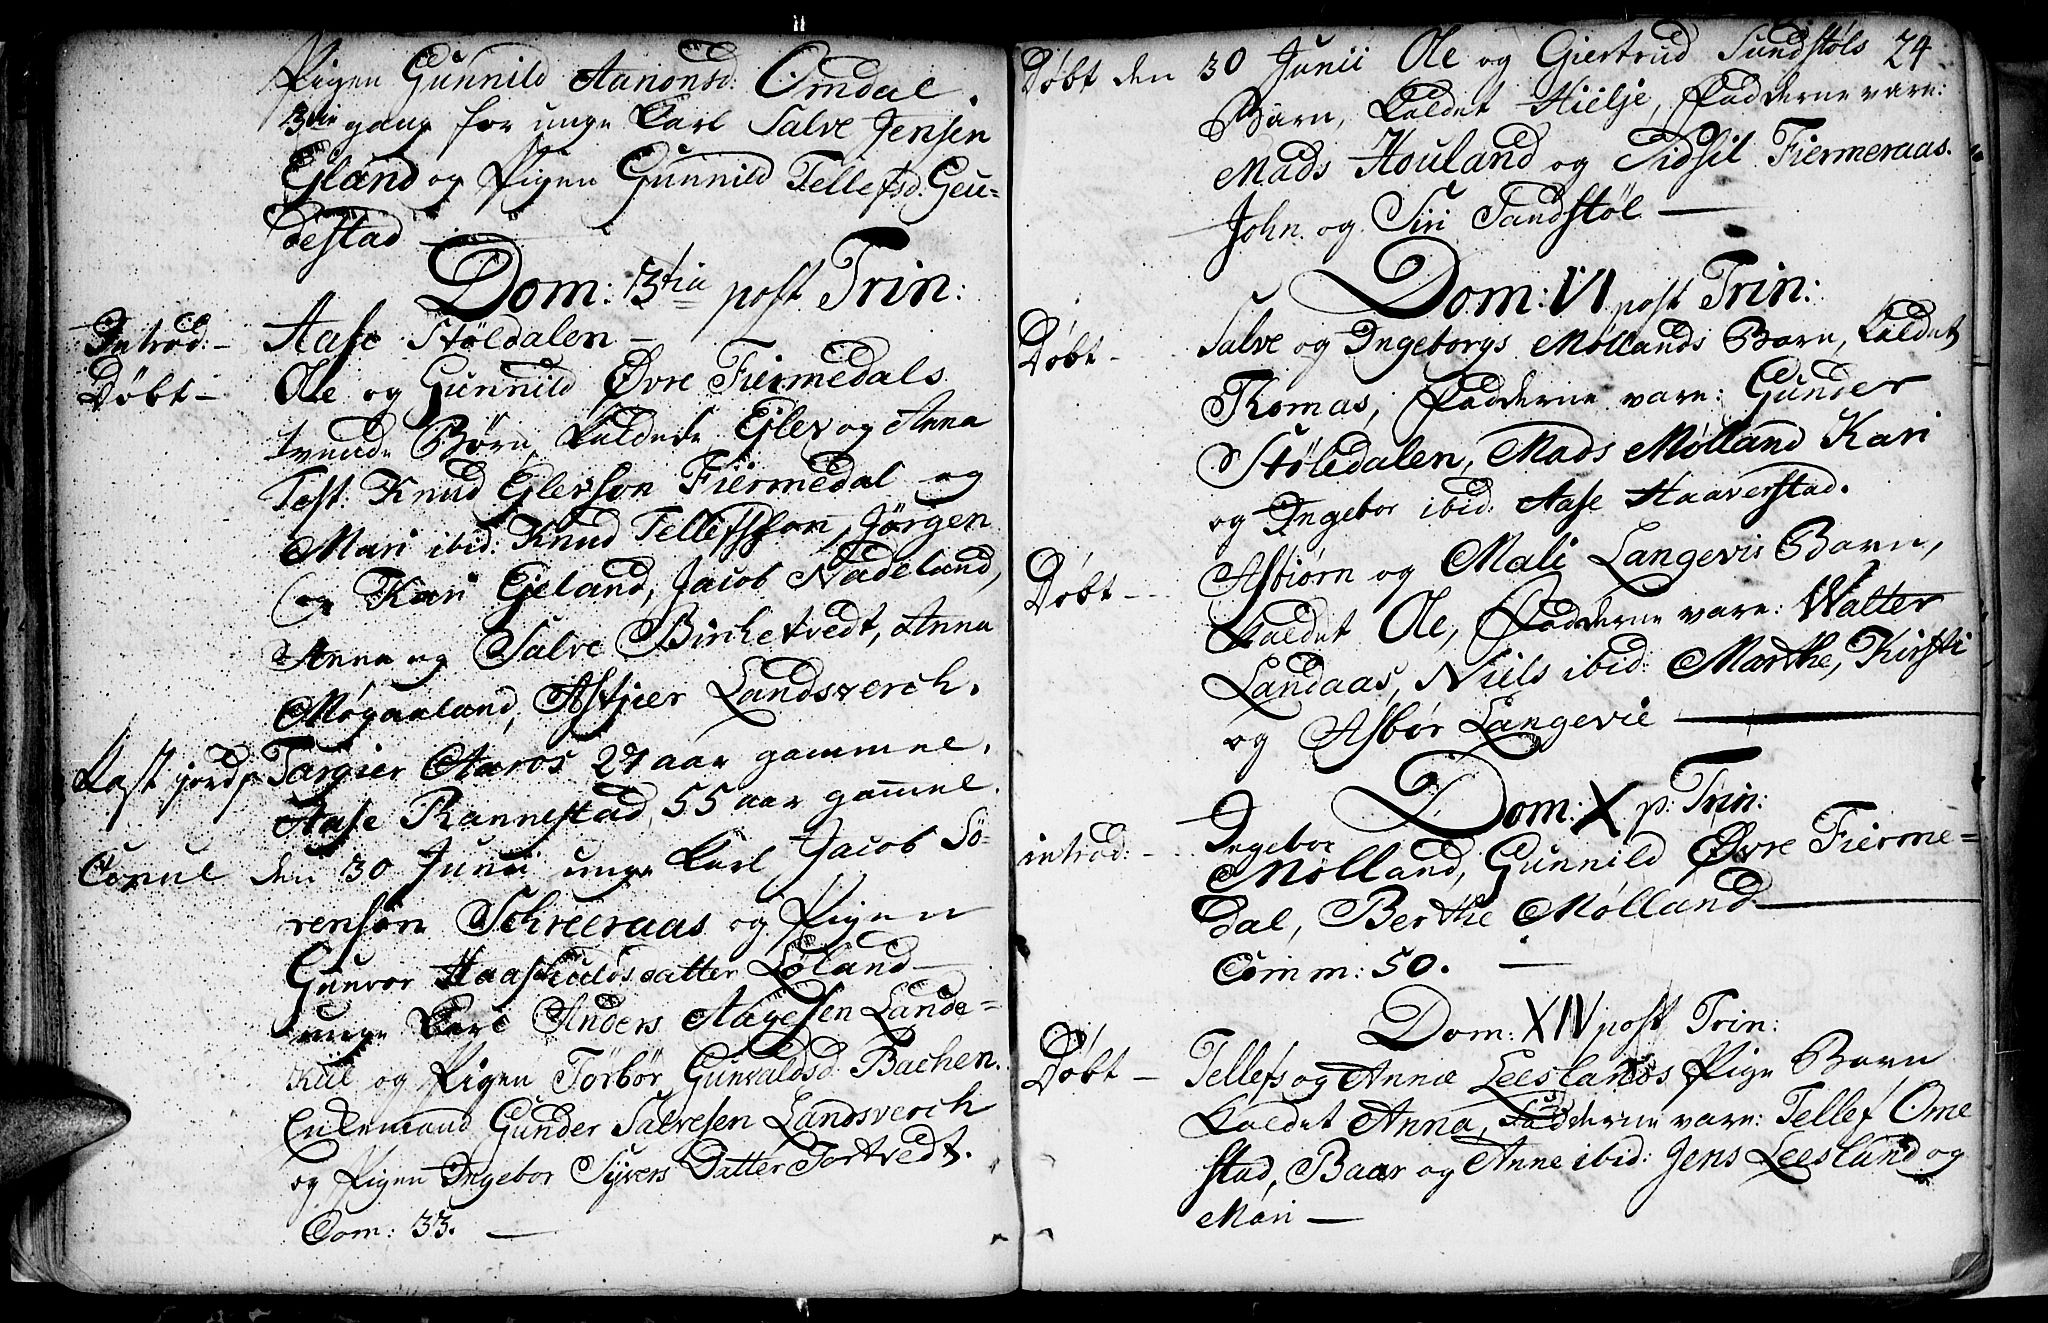 Pigen Gunnild Aanonsd. Omdal.
3die gang for unge Karl Salve Jensen
Egland og Pigen Gunnild Tellefsd. Geu-
destad
Dom: 3tia post Trin:
Introd: - Aase Stöldalen -
Døbt - Ole og Gunnild Øvre Fiermedals
tvende Børn kaldede Ejlev og Anna
Test. Knud Eglevson Fiermedal og
Mari ibid: Knud Tellefsson, Jörgen
og Kari Ejeland, Jacob Nadeland,
Anna og Salve Birchetvedt, Anna
Møgaaland, Astjer Landsverch.
Kast jord p Targier Aaros 27 aar gammel.
Aase Rannestad, 55 aar gam̄el.
Copul den 30 Junii unge Karl Jacob Sö-
rensøn Schreeraas og Pigen
Gunvor Haaskuldsdatter Egland -
unge Karl Anders Aagesen Lande-
kiil og Pigen Törbör Gunvaldsd. Bachen.
Enkemand Gunder Salvesen Landsverch
og Pigen Ingebor Syvers Datter Tortvedt.
Com: 33. -
Døbt den 30 Junii Ole og Giertrud Sundstøls 24
Barn, kaldet Hielje, Fadderne vare:
Mads Houland og Sidsil Fiermeraas.
John og Siri Sandstøl -
Dom: VI post Trin:
Døbt - Salve og Ingeborgs Møllands Barn, kaldet
Thomas, Fadderne vare: Gunder
Stöledalen, Mads Mølland Kari
og Ingebor ibid: Aase Haaverstad.
Døbt - Asbiørn og Mali Langevis Barn,
kaldet Ole, Fadderne vare: Walter
Landaas, Niels ibid: Marthe, Kirsti
og Asbør Langevie -
Dom: X p: Trin:
introd: - Ingebor
Mølland, Gunnild Øvre Fierme-
dal, Berthe Mølland -
Comm: 50. -
Dom: XIV post Trin:
Døbt - Tellefs og Anne Leeslands Pige Barn
kaldet Anna, Fadderne vare: Tellef Ome
stad, Baar og Anne ibid: Jens Leesland og
Mari -